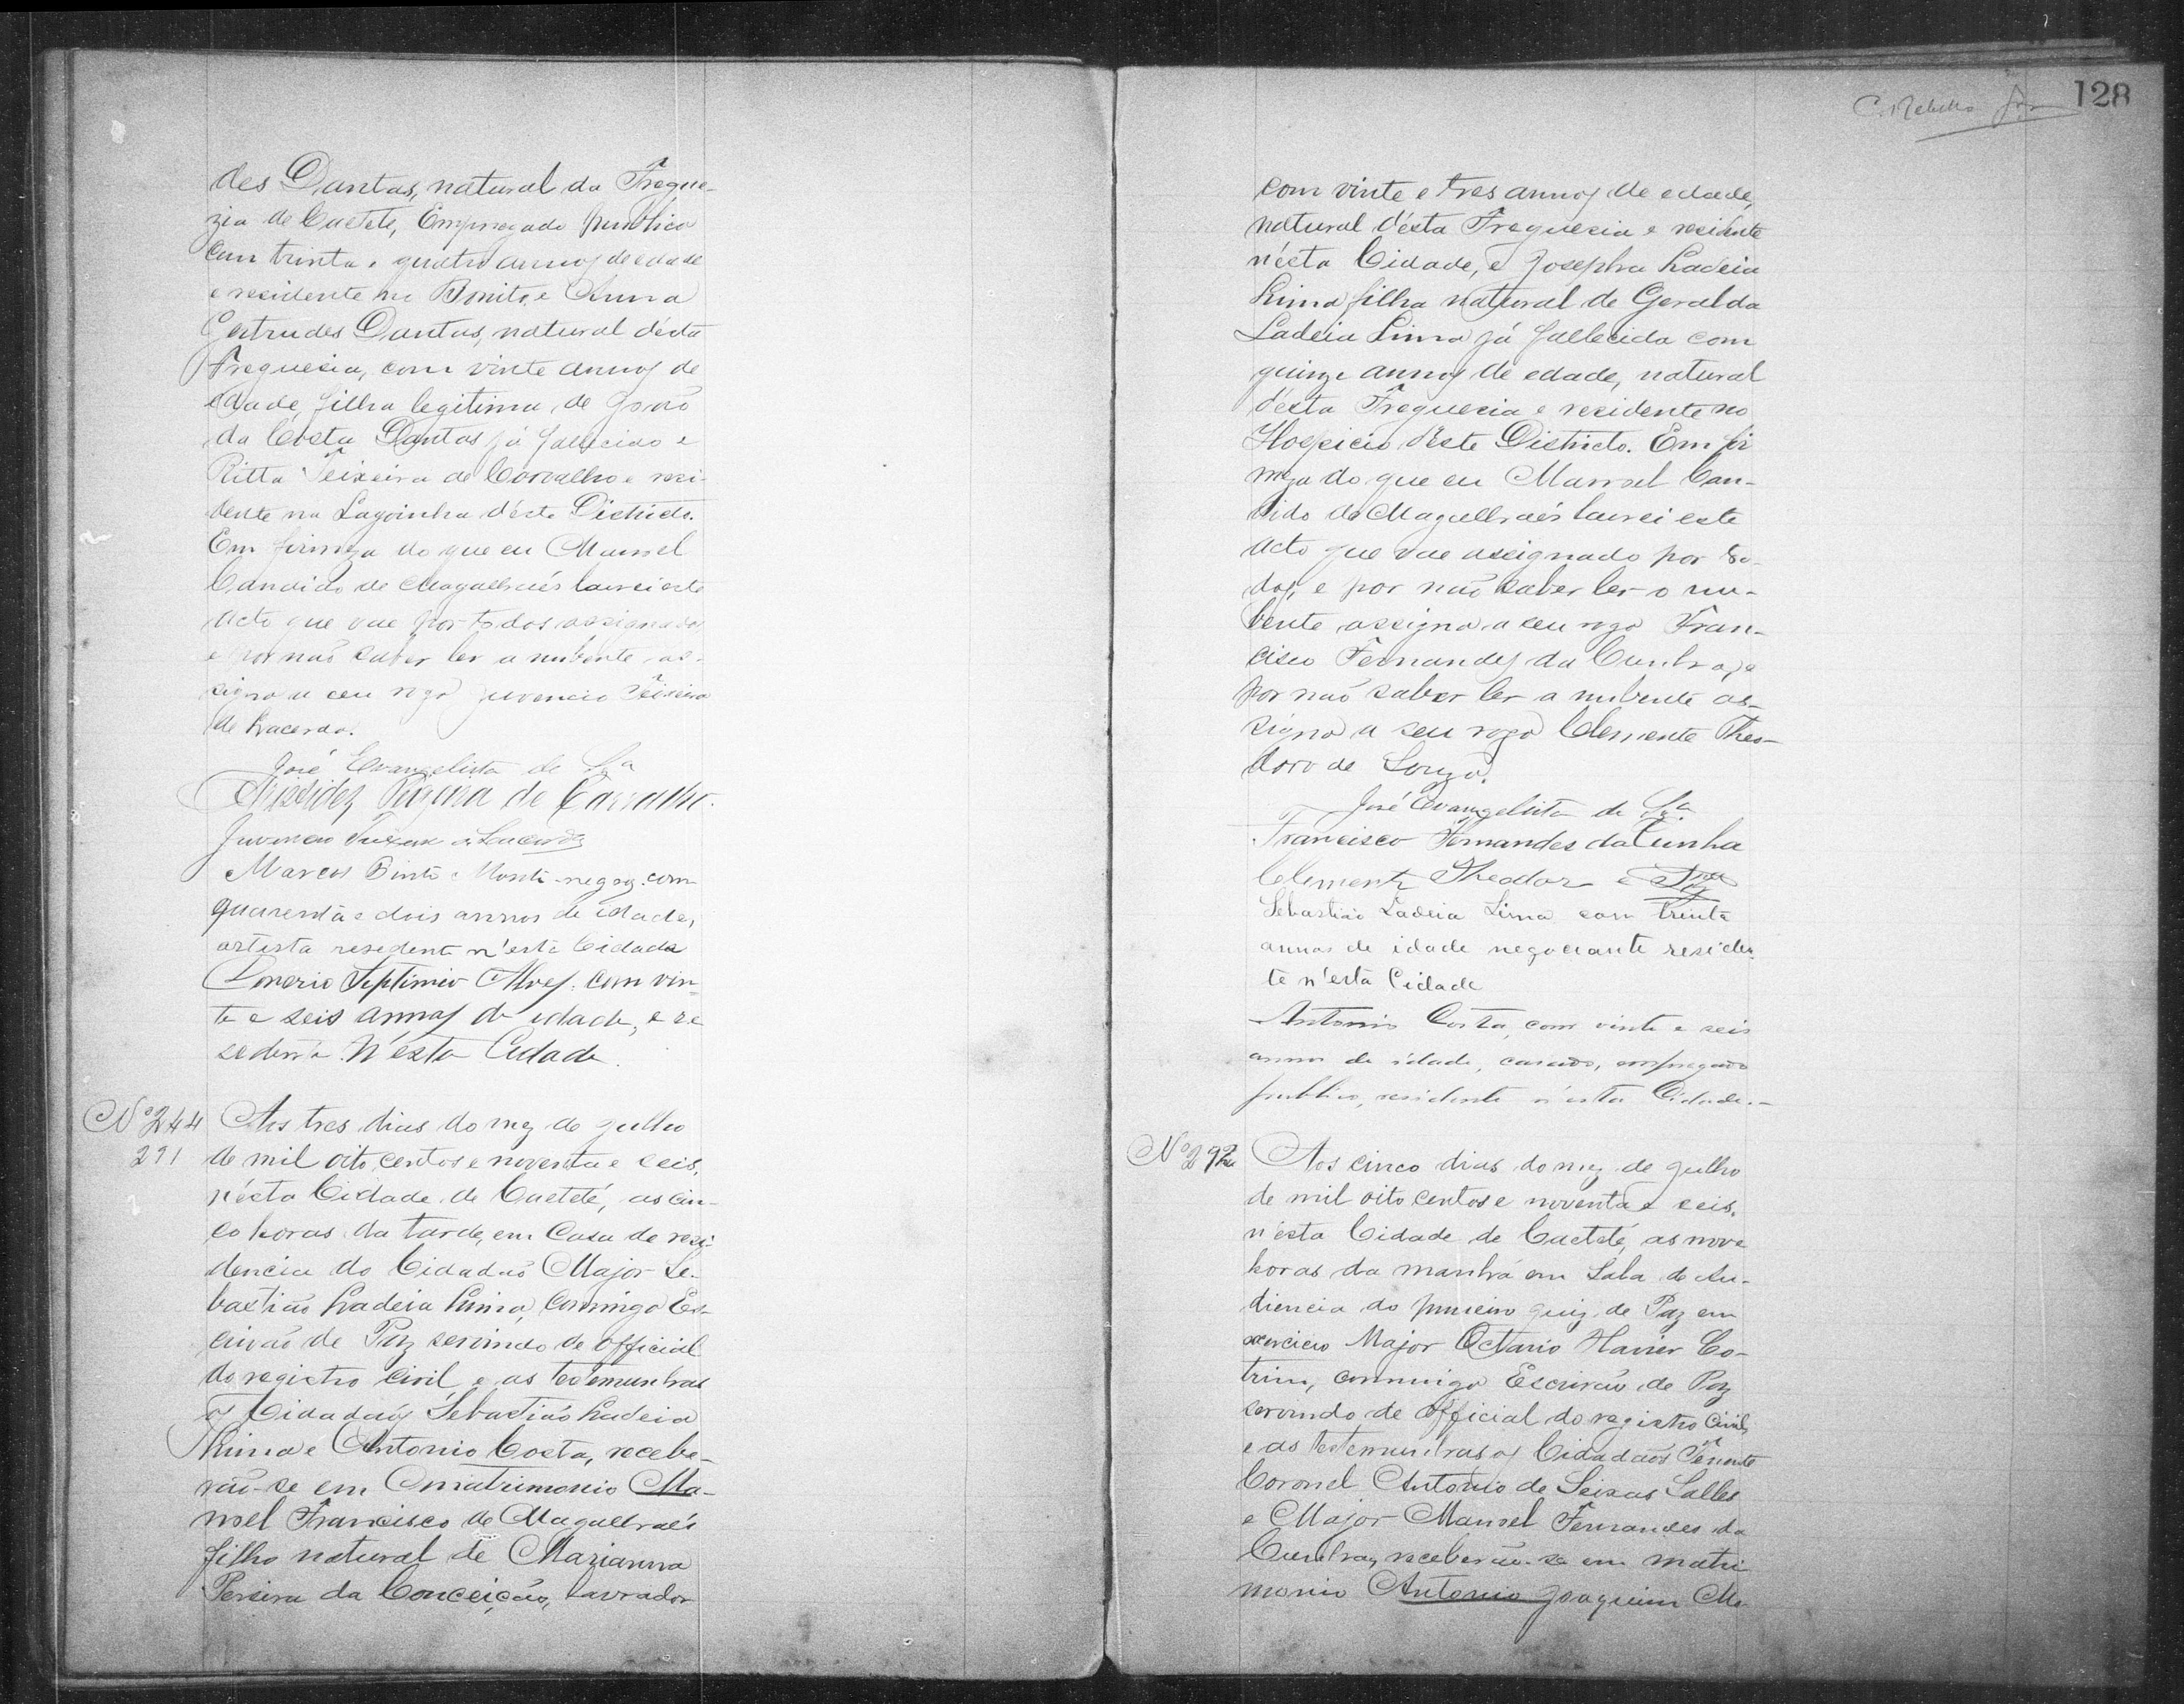 des Dantas, natural da Fregue-
zia de Caeteté, Empregado publico
com trinta e quatro annos de edade
e residente no Bonito, e Anna
Gertrudes Dantas, natural désta
Freguesia, com vinte annos de
edade, filha legitima de João
da Costa Dantas já fallecido e
Ritta Teixeira de Carvalho e resi-
dente na Lagoinha déste Districto.
Em firmeza do que eu Manoel
Candido de Magalhaés lavrei este
acto que vae por todos assignado
e por não saber ler a nubente as-
signa a seu rogo Juvencio Teixeira
de Lacerda.
José Evangelista de Sª
Aristides de Carvalho.
Juvencio Teixeira de Lacerda
Marcos Pinto Monte-negro, com
quarenta e dois annos de idade,
artista residente n'esta Cidade
Septimio Alves, com vin-
te e seis annos de idade, e re
sedente n'ésta Cidade.
Nº 244
291
Aos tres dias do mez de julho
de mil oito centos e noventa e seis,
n'ésta Cidade de Caeteté, as cin-
co horas da tarde, em Casa de resi-
dencia do Cidadaõ Major Se-
bastião Ladeia Lima, comigo Es-
crivaõ de Paz servindo de official
do registro civil e as testemunhas
os Cidadaõs Sebastião Ladeia
Lima e Antonio Costa, recebe-
raõ-se em matrimonio Ma-
noel Francisco de Magalhaés
filho natural de Marianna
Pereira da Conceição, lavrador
128
C. Rebello
com vinte e tres annos de edade,
natural d'ésta Freguesia e residente
n'ésta Cidade, e Josepha Ladeia
Lima filha natural de Geralda
Ladeia Lima já fallecida com
quinze annos de edade, natural
d'ésta Freguesia e residente no
Hospicio d'éste Districto. Em fir
meza do que eu Manoel Can-
dido de Magalhaés lavrei este
acto que vae assignado por to-
dos, e por naõ saber ler o nu-
bente assigna a seu rogo Fran-
cisco Fernandes da Cunha, e
por naõ saber ler a nubente as-
signa a seu rogo Clemente Theo-
doro de Souza.
José Evangelista de Sª
Francisco Fernandes da Cunha
Clemente Theodor e Sza
Sebastião Ladeia Lima com trinta
annos de idade negociante residen
te n'esta Cidade
Antonio Costa, com vinte e seis
annos de idade, casado, empregado
publico, residente n'esta Cidade.
Nº 292
Aos cinco dias do mez de julho
de mil oito centos e noventa e seis,
n'ésta Cidade de Caeteté, as nove
horas da manhã em Sala de Au-
diencia do primeiro juiz de Paz em
exercicio Major Octavio Xavier Co-
trim, commigo Escrivaõ de Paz
servindo de official do registro civil
e as testemunhas os Cidadaõs Tenente
Coronel Antonio de Seixas Salles
e Major Manoel Fernandes da
Cunha, receberaõ-se em matri
monio Antonio Joaquim Ma-